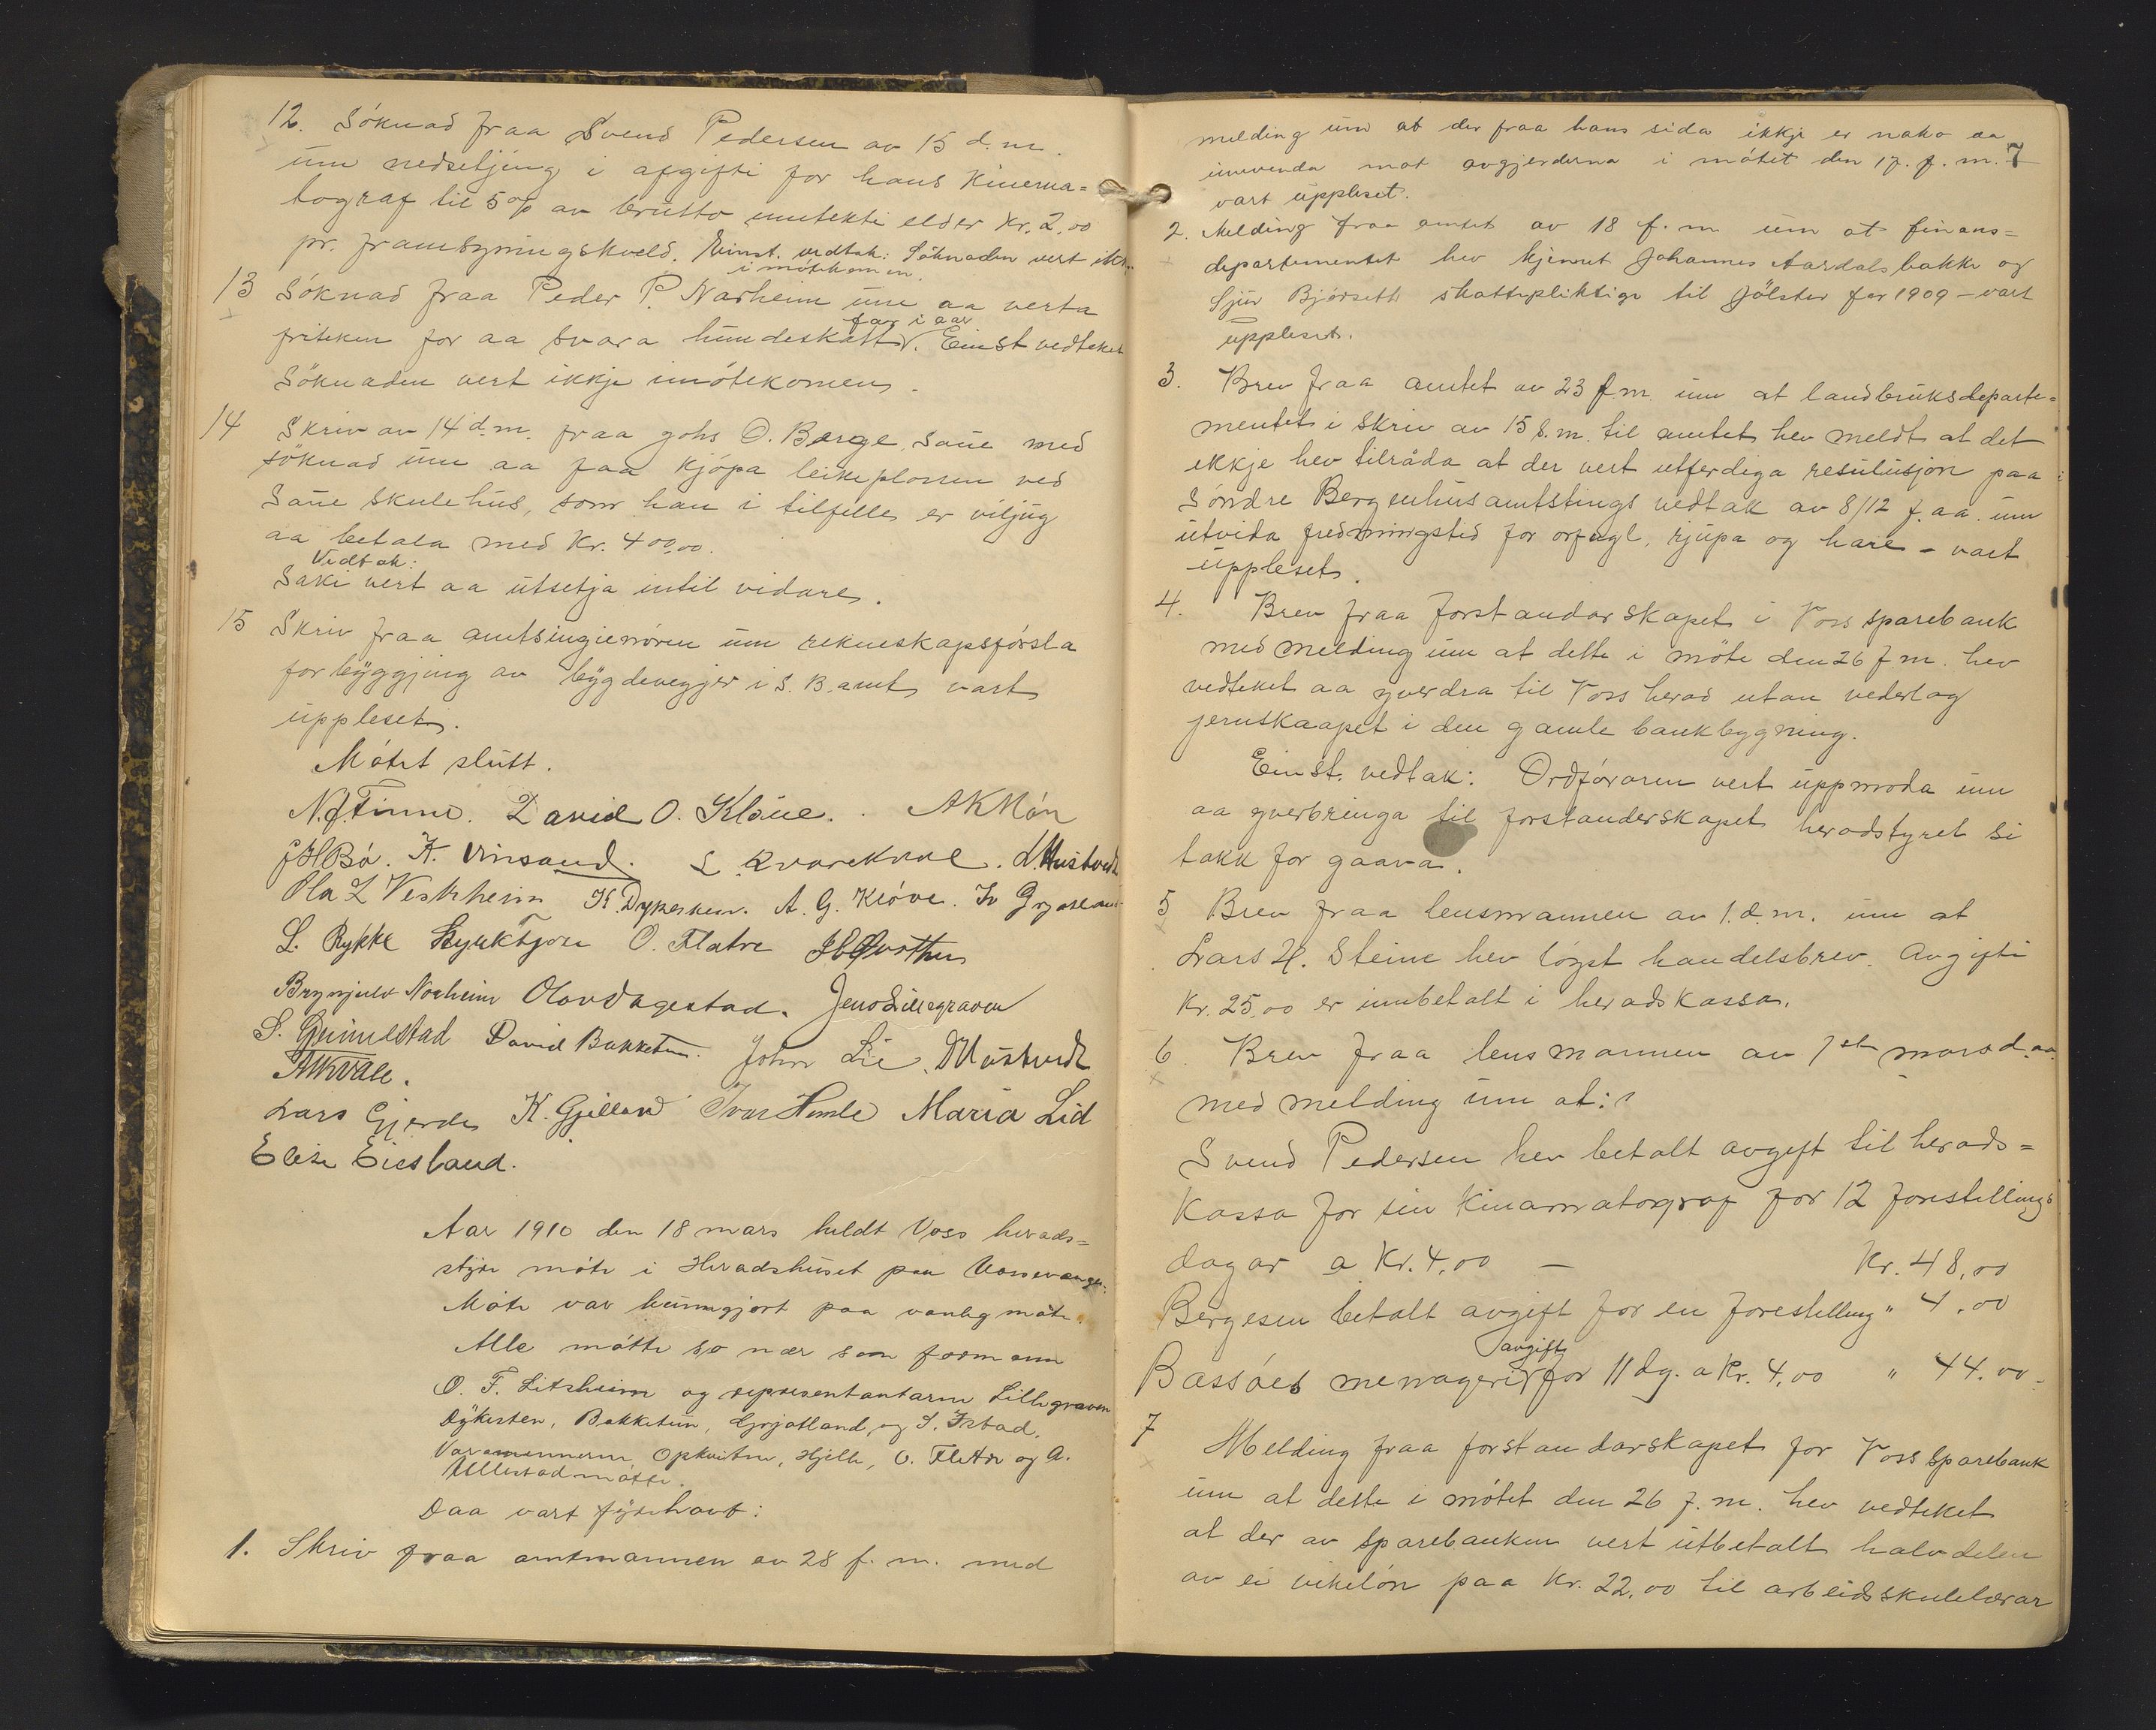 12. Söknad fraa Svend Pedersen av 15 d. m.
um nedsetjing i afgifti for hans Kinema=
tograf til 5 o/o av brutto inntekti elder Kr. 2,00
pr. framsyningskveld. Einst. vedtak: Söknaden vert ikkje
i mötekomen.
13 Söknad fraa Peder P. Narheim um aa verta
friteken for aa svara hundeskatt for i aar. Einst vedteket
Söknaden vert ikkje imötekomen.
14 Skriv av 14 d. m. fraa Johs O. Berge, Saue med
söknad um aa faa kjöpa leikeplassen ved
Saue skulehus, som han i tilfelle er viljug
aa betala med Kr. 400,00.
Vedtak:
Saki vert aa utsetja intil vidare.
15 Skriv fraa amtsingieniören um rekneskapsförsla
for byggjing av bygdevegjer i S. B. amt vart
uppleset.
Mötet slutt.
N. J. Finne. David O. Kløve. A K Mön
J H Bö. K. Vinsand. L Kvarekval. L. Hustvedt
Ola L Vestrheim K. Dykesten. A. G. Klöve. Iv Grjotland
L. Rykke O. Flatre
Brynjulv Norheim Olav Dagestad. Jens Lillegraven
S. Gjeimestad David Bakketun. John Lie.
Lars Gjerde K. Gjelland Ivar Himle Maria Lid
Elise Eiesland.
Aar 1910 den 18 mars heldt Voss herads=
styre möte i Heradshuset paa Vossevangen.
Möte var kunngjort paa vanleg måte.
Alle mötte so nær som formann
O. F. Litsheim og representantarne Lillegraven
Dykesten, Bakketun, Grjotland og S. Istad.
Varamennerne Opkvitne, Hjelle, O. Flatre og A.
Ullestad mötte.
Daa vart fyrehavt:
1. Skriv fraa amtmannen av 28 f. m. med
7
melding um at der fraa hans sida ikkje er noko aa
innvenda mot avgjerderna i mötet den 17. f. m.
vart uppleset.
2. Melding fraa amtet av 18 f. m um at finans=
departementet hev kjennet Johannes Aardalsbakke og
Sjur Björseth skattepliktige til Jölster for 1909 – vart
uppleset.
3. Brev fraa amtet av 23 f m um at landbruksdeparte=
mentet i skriv av 15 s. m. til amtet hev meldt at det
ikkje hev tilråda at der vert utferdiga resulusjon paa
Söndre Bergenhus amtstings vedtak av 8/12 f. aa. um
utvida fredningstid for orfugl, rjupa og hare – vart
uppleset.
4. Brev fraa forstandarskapet i Voss sparebank
med melding um at dette i möte den 26 f. m. hev
vedteket aa yverdra til Voss herad utan vederlag
jernskaapet i den gamle bankbygning.
Einst. vedtak: Ordföraren vert uppmoda um
aa yverbringa til forstanderskapet heradstyret si
takk for gaava.
5 Brev fraa lensmannen av 1. d. m. um at
Lars H. Steine hev löyst handelsbrev. Avgifti
Kr. 25,00 er innbetalt i heradskassa.
6 Brev fraa lensmannen av 1ste mars d. aa.
med melding um at:
Svend Pedersen hev betalt avgift til herads=
kassa for sin Kinamatograf for 12 forestillings
dagar a Kr. 4,00 – Kr. 48,00
Bergesen betalt avgift for en forestelling " 4,00
Bassöes menageri avgift for 11 dg. a Kr. 4,00 " 44.00
7 Melding fraa forstandarskapet for Voss Sparebank
um at dette i mötet den 26 f. m. hev vedteket
at der av sparebanken vert utbetalt halvdelen
av ei vikelön paa Kr. 22,00 til arbeidsskulelærar